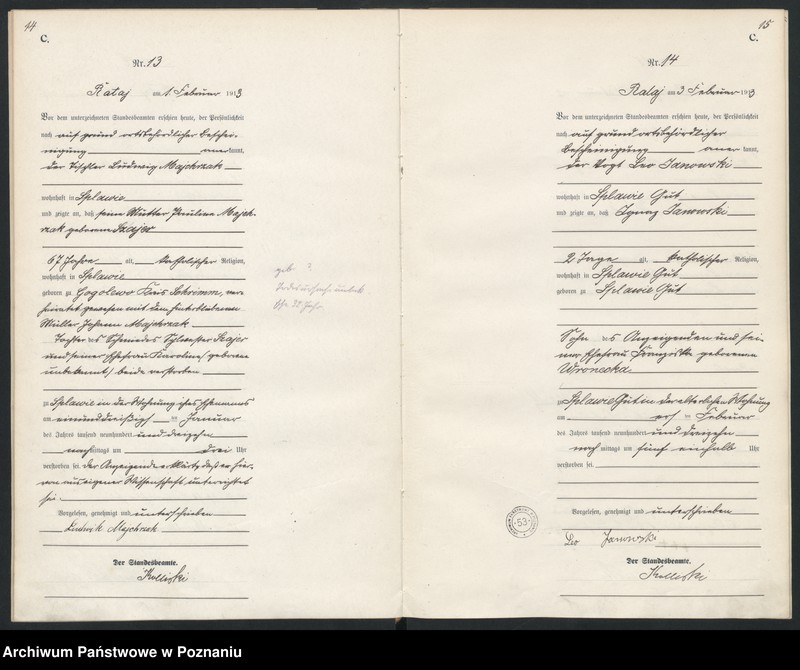 44
C.
Nr. 13
Rataj am 1. Februar 1913
Vor dem unterzeichneten Standesbeamten erschien heute, der Persönlichkeit
nach auf grund ortsbehördlicher Beschei-
nigung anerkannt,
der Tischler Ludwig Majchrzak
wohnhaft in Splawie
und zeigte an, daß seine Mutter Pauline Majch-
rzak geborene Szajer
67 Jahre alt, katholischer Religion,
wohnhaft in Splawie
geboren zu Gogolewo Kreis Schrimm, ver-
heiratet gewesen mit dem
Müller Johann Majchrzak
Tochter des Schmiedes Sylvester Szajer
und seiner Ehefrau Karoline, geborene
unbekannt, beide verstorben
zu Splawie in der Wohnung ihres Ehemannes
am einunddreißigsten Januar
des Jahres tausend neunhundert und dreizehn
nachmittags um drei Uhr
verstorben sei. Der Anzeigende erklärte, daß er hier-
von aus eigener Wissenschaft unterrichtet
sei.
Vorgelesen, genehmigt und unterschrieben
Ludwik Majchrzak
Der Standesbeamte.
geb. ?
Todesursache unbek.
Ehe 22 Jahr.
15
C.
Nr. 14
Rataj am 3 Februar 1913
Vor dem unterzeichneten Standesbeamten erschien heute, der Persönlichkeit
nach auf grund ortsbehördlicher
Bescheinigung anerkannt,
der Vogt Leo Janowski
wohnhaft in Splawie Gut
und zeigte an, daß Ignaz Janowski
2 Tage alt, katholischer Religion,
wohnhaft in Splawie Gut
geboren zu Splawie Gut
Sohn des Anzeigenden und sei-
ner Ehefrau Franziska geborenen
Wronecka
zu Splawie Gut in der elterlichen Wohnung
am ersten Februar
des Jahres tausend neunhundert und dreizehn
nachmittags um fünf einhalb Uhr
verstorben sei.
Vorgelesen, genehmigt und unterschrieben
53
Leo Janowski
Der Standesbeamte.
Archiwum Państwowe w Poznaniu